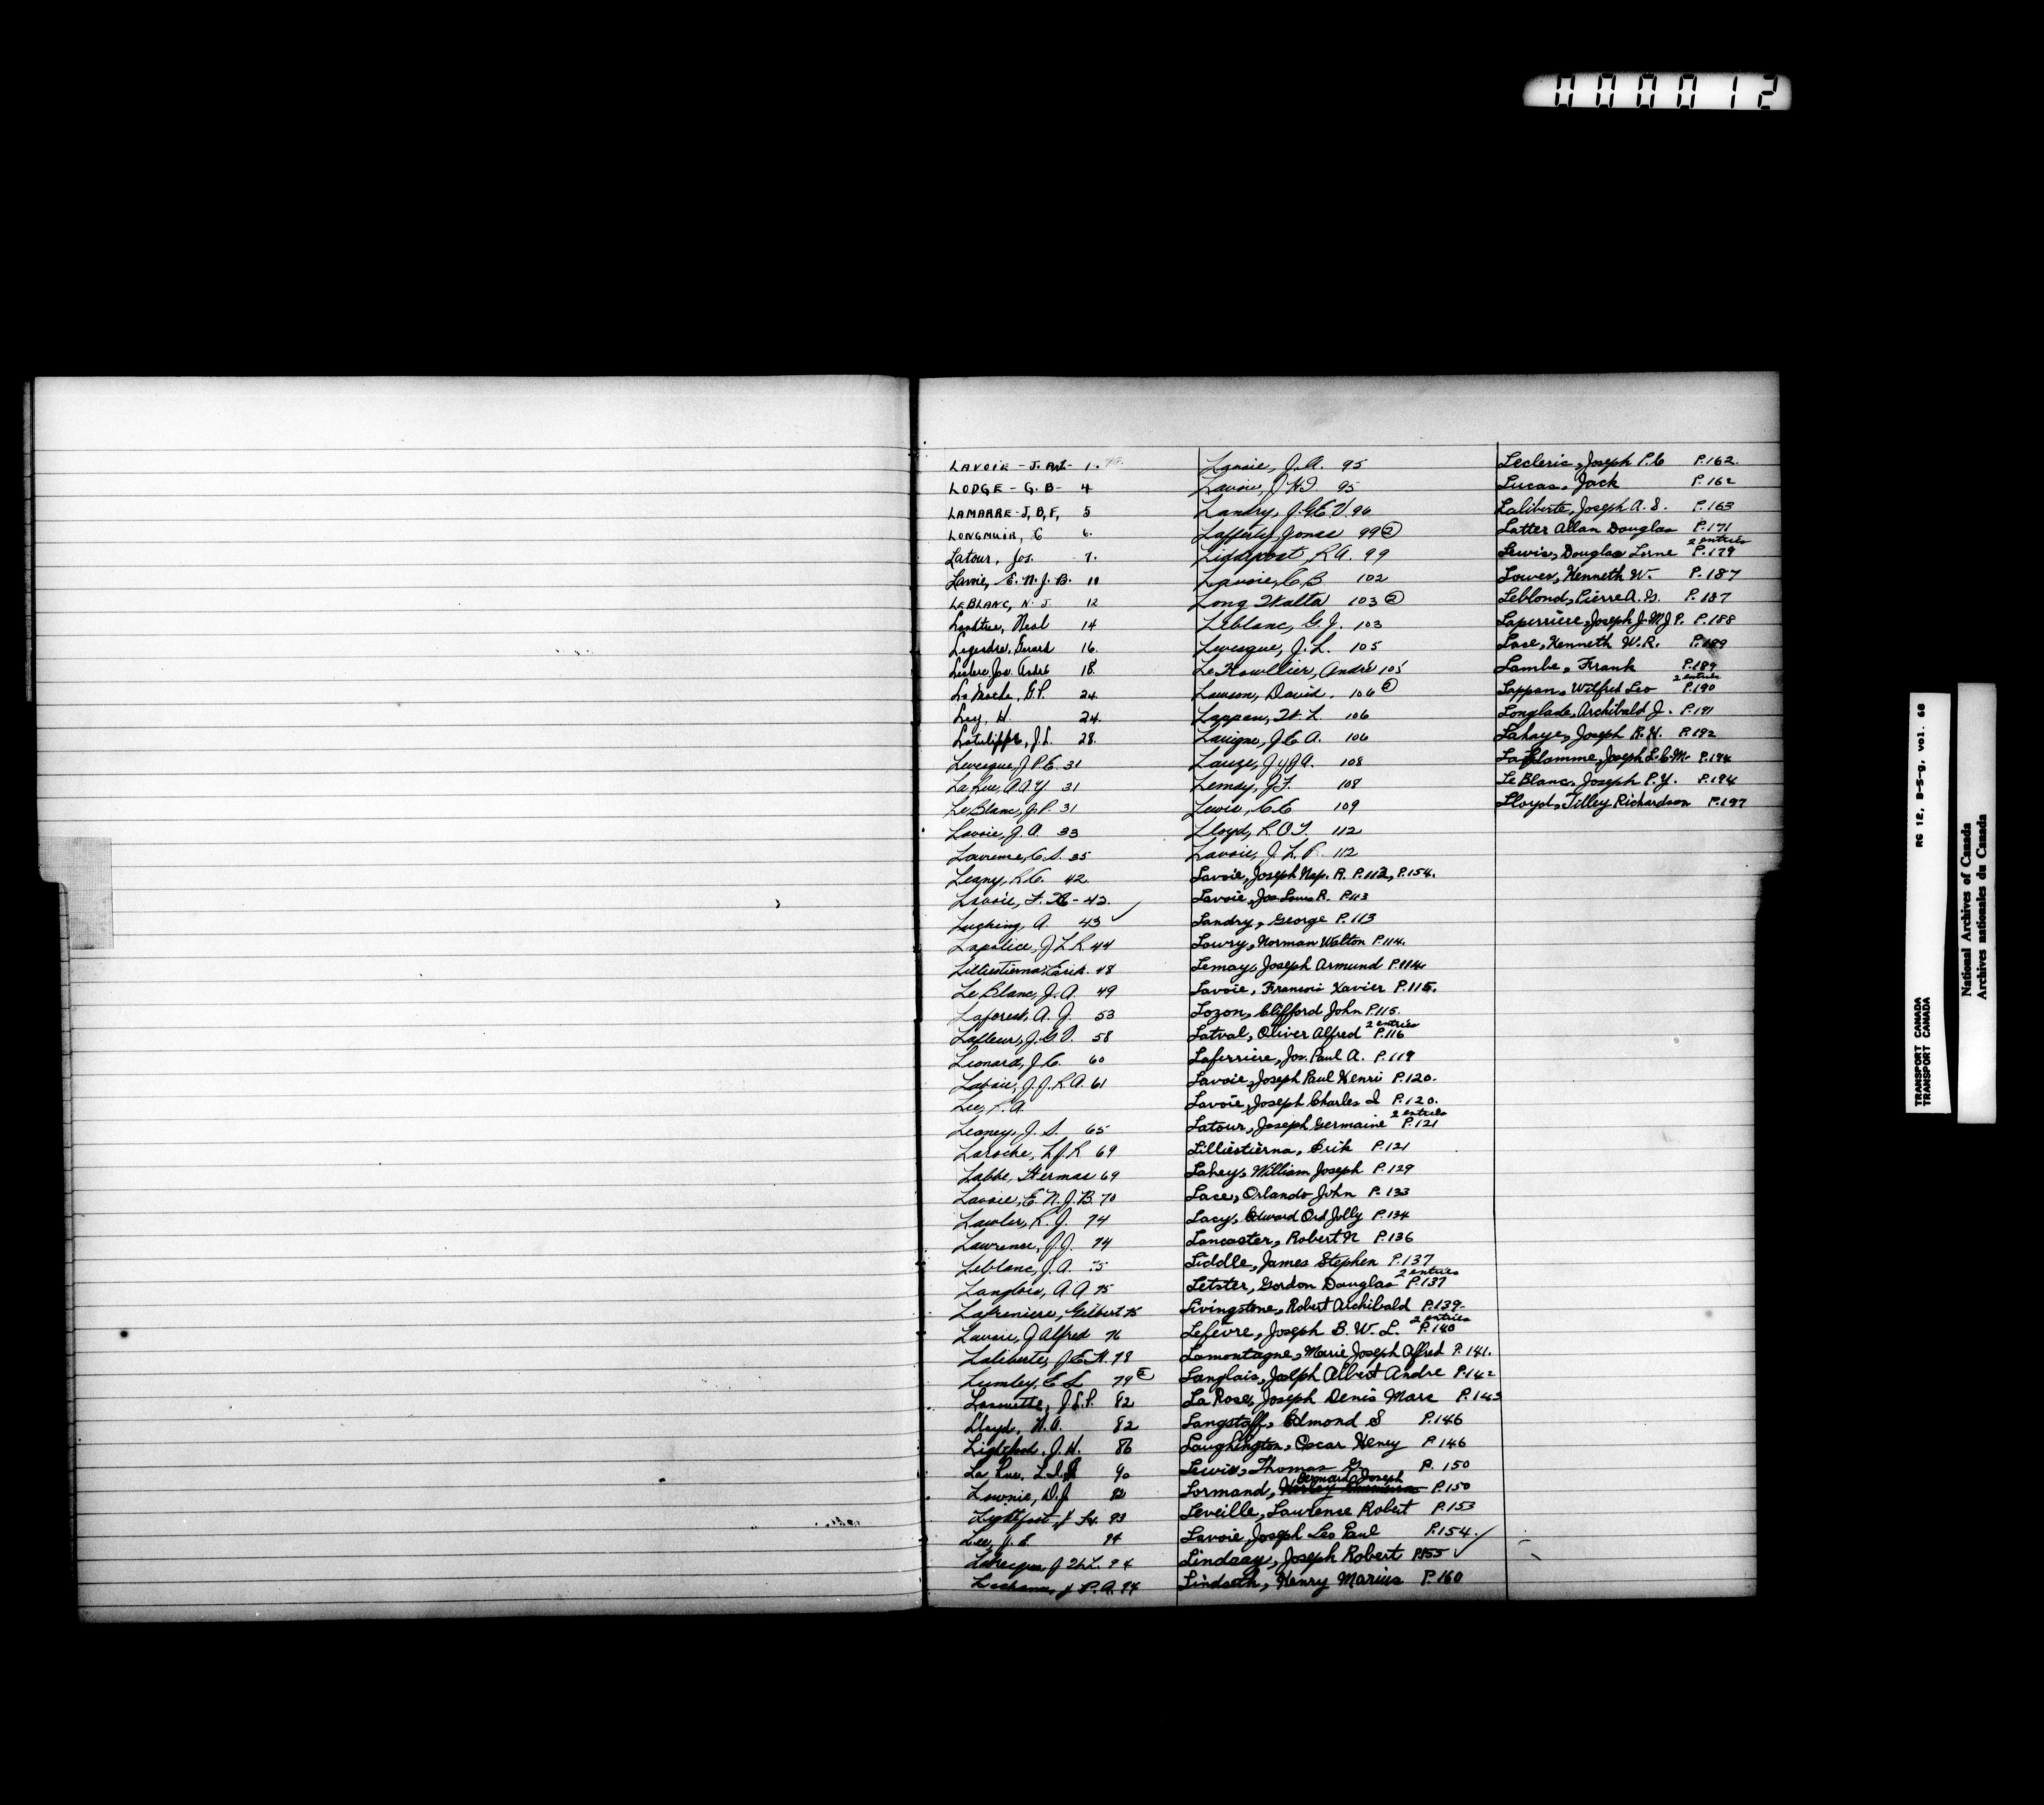 000012
LAVOIE - J. Art - 1.
LODGE - G. B - 4
LAMARRE - J, B, F, 5
LONGMUIR, C 6.
Latour, Jos. - 7.
Lavoie, E. N. J. B. 10
LEBLANC, N. J. 12
Neal 14
Legendre, Gerard 16.
Leclerc Jos. André 18.
La Roche, G. P. 24.
Ley, H. 24.
Latulippe, J. L. 28.
Levesque, J P. E. 31
La Rue, A A Y 31
Le Blanc, J. P. 31
Lavoie, J. A. 33
Lawrence, C. S. 35
Leany, R C. 42
Lavoie, F. X - 42.
Lushing, A. 43 ✓
Lapalice, J L R 44
Lilliestierna, Erik. 48
Le Blanc, J. A. 49
Laforest, A. J. 53
Lafleur, J. G. V. 58
Leonard, J. C. 60
Lavoie, J. J. R A. 61
Lee, R. A.
Leaney, J. S. 65
Laroche, L J R 69
Labbe, Hermas 69
Lavoie, E. N. J. B. 70
Lawler, R. J. 74
Lawrence, J. J. 74
Leblanc, J. A. 75
Langlois, A A 75
Lafreniere, Gilbert 75
Lavoie, J Alfred 76
Laliberte, J. E. H. 78
Lumley, E L 79 ②
J. L. P. 82
Lloyd, N. A. 82
Lightfoot, J. H. 86
La Rue, L. I. 90
Lownie, D. J. 92
Lightfoot, J 93
Lee, J. E. 94
Levesque, J. 94
J. P. A. 94
Lavoie, J. A. 95
Lavoie, J H I 95
Landry, J. G. E V. 96
Lafferty Jonas 99 ②
R A. 99
Lavoie, C. B 102
Long Walter 103 ②
Leblanc, G. J. 103
Levesque, J. L. 105
Le Rouillier, André 105
Lawson, David. 106 ②
Lappan, W. L. 106
Lavigne, J C A. 106
Lauze, J. 108
Lemay, J. F. 108
Lewis, C. E 109
Lloyd, R O T. 112
Lavoie, J. L. R. 112
Lavoie, Joseph Nap. R. P. 112, P. 154.
Lavoie, Jos Louis R. P. 113
Landry, George P. 113
Lowry, Norman Walton P. 114.
Lemay, Joseph Armund P. 114.
Lavoie, Francois Xavier P. 115.
Lozon, Clifford John P. 115.
Latval, Oliver Alfred 2 entries P. 116
Laferriere, Jos. Paul A. P. 119
Lavoie, Joseph Paul Henri P. 120.
Lavoie, Joseph Charles I P. 120.
Latour, Joseph Germaine 2 entries P. 121
Lilliestierna, Erik P. 121
Lahey, William Joseph P. 129
Lace, Orlando John P. 133
Lacy, Edward Ord Jolly P. 134
Lancaster, Robert N P. 136
Liddle, James Stephen P. 137
Letster, Gordon Douglas 2 entries P. 137
Livingstone, Robert Archibald P. 139
Lefevre, Joseph B. W. L. 2 entries P. 140
Lamontagne, Marie Joseph Alfred P. 141.
Langlais, Joseph Albert Andre P. 142
La Rose, Joseph Denis Marc P. 143
Langstaff, Edmond S P. 146
Laughington, Oscar Henry P. 146
Lewis, Thomas G. P. 150
Lormand, Bernard Joseph P. 150
Leveille, Lawrence Robert P. 153
Lavoie Joseph Leo Paul P. 154. ✓
Lindsay, Joseph Robert P. 155 ✓
Lindseth, Henry Marius P. 160
Lecleric, Joseph P. C P. 162.
Lucas, Jack P. 162
Laliberte, Joseph A. S. P. 163
Latter Allan Douglas P. 171
Lewis, Douglas Lorne 2 entries P. 179
Lowes, Kenneth W. P. 187
Leblond, Pierre A. G. P. 187
Laperriere, Joseph J. M J P. P. 188
Lace, Kenneth W. R. P. 189
Lambe, Frank P. 189
Lappan, Wilfred Leo 2 entries P. 190
Longlade, Archibald J. P. 191
Lahaye, Joseph R. H. P. 192
La Flamme, Joseph L. C. M. P. 194
Le Blanc, Joseph P. Y. P. 194
Lloyd, Tilley Richardson P. 197
TRANSPORT CANADA RG 12, B-5-g, vol. 68
TRANSPORT CANADA
National Archives of Canada
Archives nationales du Canada